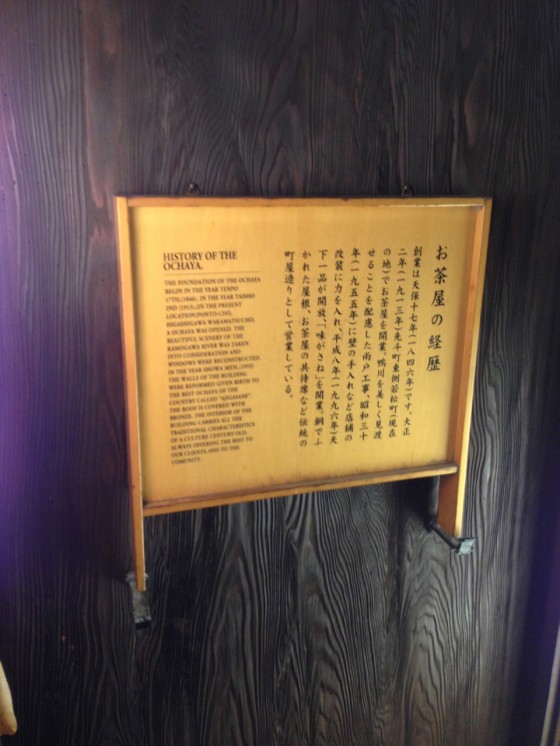 お茶屋の経歴
創業は天保十七年(一八四六年)です。大正
二年(一九一三年)先斗町東側若松町(現在
の地)でお茶屋を開業。鴨川を美しく見渡
せることを配慮した雨戸工事、昭和三十
年(一九五五年)に壁の手入れなど店舗の
改装に力を入れ、平成八年(一九九六年)天
下一品が開放、「味がさね」を開業。銅でふ
かれた屋根、お茶屋の共待席など伝統の
町屋造りとして営業している。
HISTORY OF THE
OCHAYA.
THE FOUNDATION OF THE OCHAYA
BEGIN IN THE YEAR TENPO
17TH, (1846), IN THE YEAR TAISHO
2ND (1913), (IN THE PRESENT
LOCATION) PONTO-CHO,
HIGASHIGAWA WAKAMATSUCHO,
A OCHAYA WAS OPENED. THE
BEAUTIFUL SCENERY OF THE
KAMOGAWA RIVER WAS TAKEN
INTO CONSIDERATION AND
WINDOWS WERE RECONSTRUCTED.
IN THE YEAR SHOWA 30TH, (1955)
THE WALLS OF THE BUILDING
WERE REFORMED GIVEN BIRTH TO
THE BEST OCHAYA OF THE
COUNTRY CALLED "AJIGASANE".
THE ROOF IS COVERED WITH
BRONZE, THE INTERIOR OF THE
BUILDING CARRIES ALL THE
TRADITIONAL CHARACTERISTICS
OF A CULTURE CENTURY OLD.
ALWAYS OFFERING THE BEST TO
OUR CLIENTS, AND TO THE
COMUNITY.